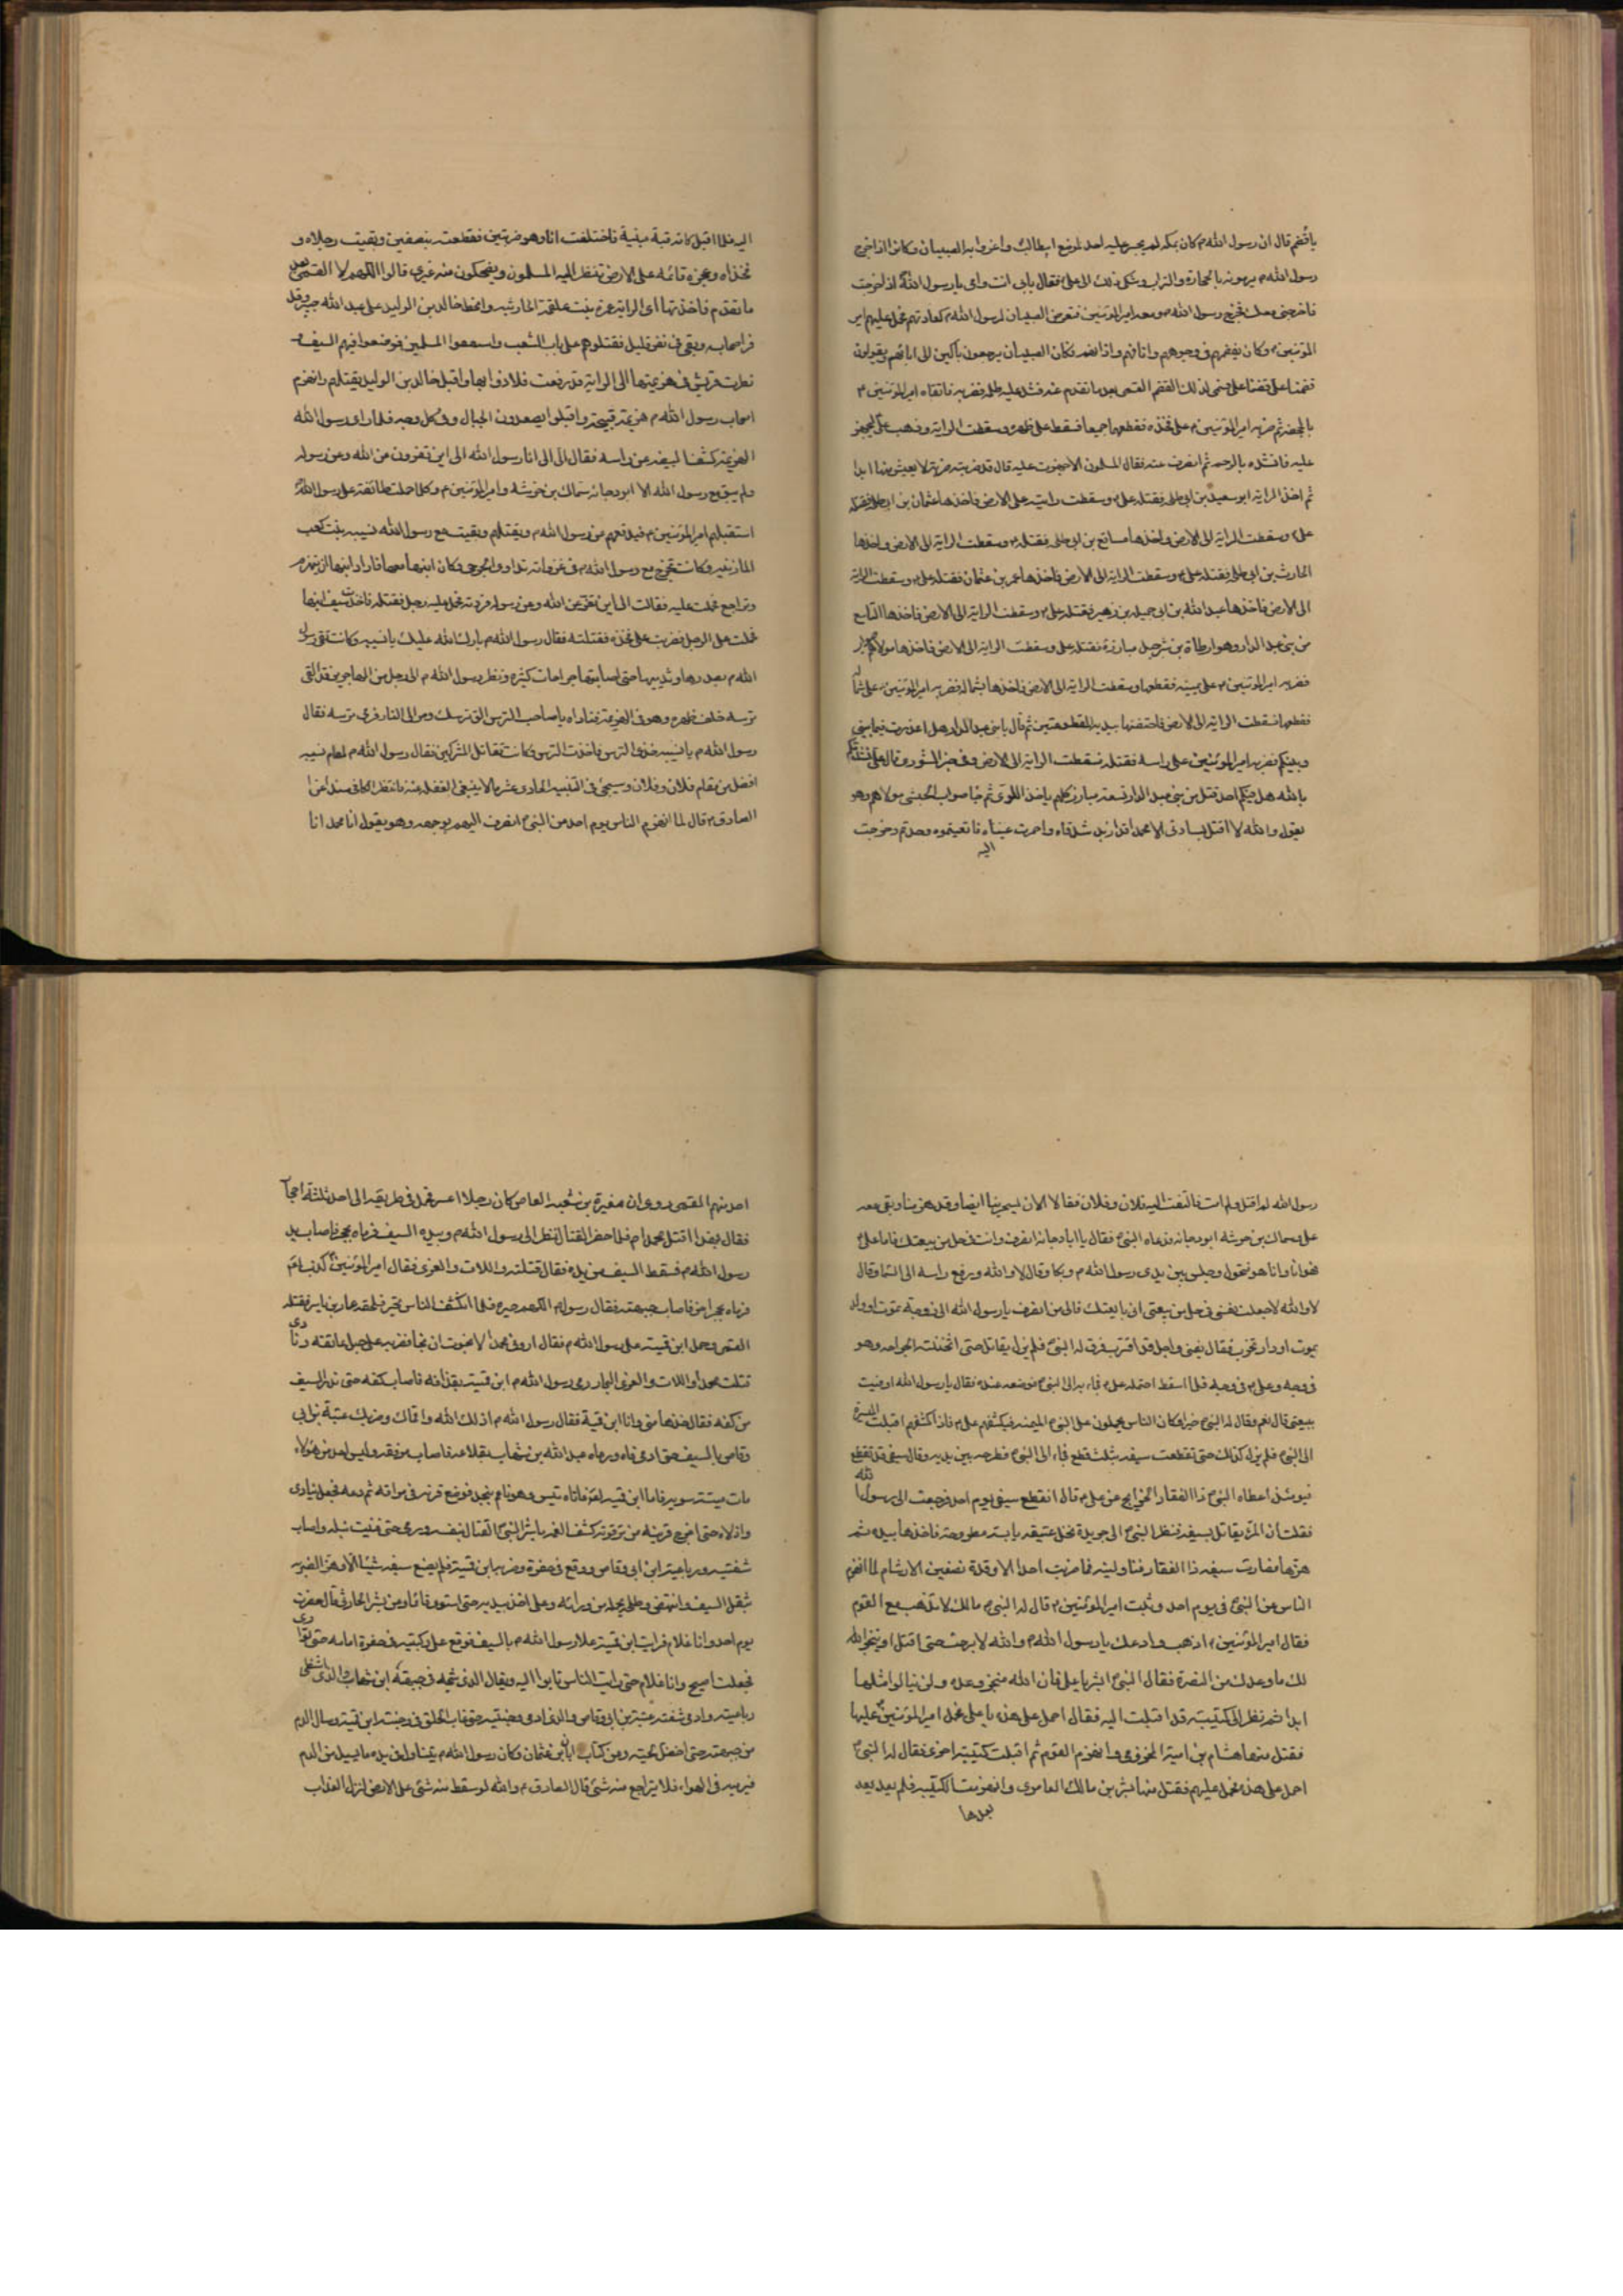 يا قضم قال ان رسول الله م كان بمكه لم يجسر عليه احد لموضع ابيطالب واغروا به الصبيان وكانوا اذا خرج
رسول الله م يرمونه بالحجارة والتراب وشكى ذلك الى علي فقال بابي انت وامي يا رسول الله اذا خرجت
فاخرجني معك فخرج رسول الله م ومعه امير المؤمنين فتعرض الصبيان لرسول الله م كعادتهم فحمل عليهم امير
المؤمنين م وكان يقضمهم في وجوههم وانافهم واذانهم فكان الصبيان يرجعون باكين الى ابائهم ويقولون
قضمنا علي قضمنا علي فسمي لذلك القضم القمي بعد ما تقدم عنه فشد عليه طلحه فضربه فاتقاه امير المؤمنين م
بالحجفه ثم ضربه امير المؤمنين م على فخذه فقطعهما جميعا فسقط على ظهره وسقطت الراية وذهب علي ليجهز
عليه فانشده بالرحم ثم انصرف عنه فقال المسلمون الا اجهزت عليه قال قد ضربته ضربة لا يعيش منها ابدا
ثم اخذ الراية ابو سعيد بن ابي طلحه فقتله علي م وسقطت رايته على الارض فاخذها عثمان بن ابي طلحه فقتله
علي م وسقطت الراية الى الارض واخذها مسافع بن ابي طلحه فقتله م وسقطت الراية الى الارض واخذها
الحارث بن ابي طلحه فقتله علي م وسقطت الراية الى الارض فاخذها عمر بن عثمان فقتله علي م وسقطت الراية
الى الارض فاخذها عبد الله بن ابي جميله بن زهير فقتله علي م وسقطت الراية الى الارض فاخذها التاسع
من بني عبد الدار وهو ارطاة بن شرجيل مبارزة فقتله علي وسقطت الراية الى الارض فاخذها مولاهم صواب
فضربه امير المؤمنين م على يمينه فقطعها وسقطت الراية الى الارض فاخذها بشماله فضربه امير المؤمنين م على شماله
فقطعها فسقطت الراية الى الارض فاحتضنها بيديه المقطوعتين ثم قال يا بني عبد الدار هل اعذرت فيما بيني
وبينكم فضربه امير المؤمنين على راسه فقتله فسقطت الراية الى الارض وفي خبر الشورى قال علي نشدتكم
بالله هل فيكم احد قتل من بني عبد الدار تسعة مبارز كلهم ياخذ اللوى ثم جا صواب الحبشي مولاهم وهو
يقول والله لا اقتل بسادتي الا محمدا قد ازبد شدقاه واحمرت عيناه فاتقيتموه وحدتم وخرجت
اليه
اليه فلما اقبل كانه قبة مبنية فاختلفت انا وهو ضربتين فقطعته بنصفين وبقيت رجلاه و
فخذاه وعجزه قائمه على الارض تنظر اليه المسلمون ويضحكون منه غيري قالوا اللهم لا القمي بعد
ما تقدم فاخذتها اي الراية عمرة بنت علقمة الحارثيه وانحط خالد بن الوليد على عبد الله جبير وقد
فر اصحابه وبقي في نفر قليل فقتلوهم على باب الشعب واستعقبوا المسلمين فوضعوا فيهم السيف و
نظرت قريش في هزيمتها الى الراية قد رفعت فلاذوا بها واقبل خالد بن الوليد يقتلهم وانهزم
اصحاب رسول الله م هزيمة قبيحة واقبلوا يصعدون الجبال وفي كل وجه فلما راى رسول الله
الهزيمة كشف البيضه عن راسه فقال الي الي انا رسول الله الى اين تفرون عن الله وعن رسوله
ولم يبق مع رسول الله الا ابو دجانه سماك بن خرشه وامير المؤمنين م وكلما حملت طائفة على رسول الله
استقبلهم امير المؤمنين م فيدفعهم عن رسول الله م ويقتلهم وبقيت مع رسول الله نسيبه بنت كعب
المازنيه وكانت تخرج مع رسول الله م في غزواته تداوي الجرحى وكان ابنها معها فاراد ابنها ان ينهزم
ويتراجع فحملت عليه فقالت الى اين تفر عن الله وعن رسوله فردته فحمل عليه رجل فقتله فاخذت سيف ابنها
فحملت على الرجل فضربت على فخذه فقتلته فقال رسول الله م بارك الله عليك يا نسيبه وكانت تقي رسول
الله م بصدرها وثدييها حتى اصابتها جراحات كثيره ونظر رسول الله م الى رجل من المهاجرين قد القى
ترسه خلف ظهره وهو في الهزيمة فناداه يا صاحب الترس الق ترسك ومر الى النار فرمى ترسه فقال
رسول الله م يا نسيبه خذي الترس فاخذت الترس وكانت تقاتل المشركين فقال رسول الله م لمقام نسيبه
افضل من مقام فلان وفلان وسيجئ في التنبيه الحادي عشر ما لا ينبغي الغفله عنه فانتظر الكافي مسندا عن
الصادق م قال لما انهزم الناس يوم احد عن النبي م انصرف اليهم بوجهه وهو يقول انا محمد انا
رسول الله لم اقتل ولم امت فالتفت اليه فلان وفلان فقالا الان يسخر بنا ايضا وقد هزمنا وبقي معه
علي وسماك بن خرشه ابو دجانه فدعاه النبي م فقال يا ابا دجانه انصرف وانت في حل من بيعتك فاما علي
فهو انا وانا هو فتحول وجلس بين يدي رسول الله م وبكا وقال لا والله ورفع راسه الى السما وقال
لا والله لا جعلت نفسي في حل من بيعتي اني بايعتك فالى من انصرف يا رسول الله الى زوجة تموت او ولد
يموت او دار تخرب فقال يفنى واجل قد اقترب فرق له النبي م فلم يزل يقاتل حتى اثخنته الجراحه وهو
في وجه وعلي م في وجه فلما اسقط احتمله علي م فجاء به الى النبي م فوضعه عنده فقال يا رسول الله اوفيت
ببيعتي قال نعم وقال له النبي م خيرا وكان الناس يحملون على النبي م الميمنه فيكشفهم علي م فاذا كشفهم اقبلت الميسرة
الى النبي م فلم يزل كذلك حتى تقطعت سيفه بثلث قطع فجاء الى النبي م فطرحه بين يديه وقال سيفي قد تقطع
فيومئذ اعطاه النبي م ذا الفقار الخرايج عن علي م قال انقطع سيفي يوم احد فرجعت الى رسول الله
فقلت ان المرء يقاتل بسيفه فنظر النبي م الى جريدة نخل عتيقه يابسه مطروحة فاخذها بيده ثم
هزها فصارت سيفه ذا الفقار فناولنيه فما ضربت احدا الا وقده نصفين الارشاد لما انهزم
الناس عن النبي م في يوم احد وثبت امير المؤمنين م قال له النبي م مالك لا تذهب مع القوم
فقال امير المؤمنين م اذهب وادعك يا رسول الله م والله لا برحت حتى اقتل او ينجز الله
لك ما وعدك من النصرة فقال النبي م ابشر يا علي فان الله منجز وعده ولن ينالوا مثلها
ابدا ثم نظر الى كتيبة قد اقبلت اليه فقال احمل على هذه يا علي فحمل امير المؤمنين م عليها
فقتل منها هشام بن امية المخزومي وانهزم القوم ثم اقبلت كتيبة اخرى فقال له النبي م
احمل على هذه فحمل عليهم فقتل منها بشر بن مالك العامري وانهزمت الكتيبه فلم يعد بعد
بعدها
احد منهم القمي روى ان مغيرة بن العاص كان رجلا اعسر فحمل في طريقه الى احد ثلثة احجار
فقال بهذا اقتل محمدا م فلما حضر القتال نظر الى رسول الله م وبيده السيف فرماه بحجر فاصاب يد
رسول الله م فسقط السيف من يده فقال قتلته واللات والعزى فقال امير المؤمنين م كذب لعنه
فرماه بحجر اخر فاصاب جبهته فقال رسول م اللهم حيره فلما انكشف الناس تحير فلحقه عمار بن ياسر فقتله
القمي وحمل ابن قميئة على رسول الله م فقال اروني محمدا لا نجوت ان نجا فضربه على حبل عاتقه ونادى
قتلت محمدا واللات والعزى البحار رمى رسول الله م ابن قميئة بقذافة فاصاب كفه حتى ندر السيف
من كفه فقال خذها مني وانا ابن قميئة فقال رسول الله م اذلك الله واقماك وضربه عتبة بن ابي
وقاص بالسيف حتى ادمى فاه ورماه عبد الله بن شهاب بقلاعه فاصاب مرفقه وليس احد من هؤلاء
مات ميتة سوية فاما ابن قميئه فاتاه تيس وهو نائم بنجد فوضع قرنه في مراقه ثم دعسه فجعل ينادي
واذلاه حتى اخرج قرنيه من ترقوته كشف الغمه باشر النبي م القتال بنفسه ورمى حتى فنيت نبله واصاب
شفتيه ورباعيته ابن ابي وقاص ووقع في حفرة وضربه ابن قميئة فلم يصنع سيفه شيئا الا وهن الضربه
بثقل السيف وانتهض وطلحه يحمله من ورائه وعلي اخذ بيديه حتى استوى قائما وعن بشر الحارثي قال حضرت
يوم احد وانا غلام فرايت ابن قميئة علا رسول الله م بالسيف فوقع على ركبتيه في حفرة امامه حتى توارى
فجعلت اصيح وانا غلام حتى رايت الناس ثابوا اليه ويقال الذي شجه في جبهته ابن شهاب والذي اشظى
رباعيته وادمى شفته عتبة بن ابي وقاص والذي ادمى وجنتيه حتى غاب الحلق في وجنته ابن قميئة وسال الدم
من جبهته حتى اخضل لحيته ومن كتاب ابان بن عثمان وكان رسول الله م يتناول في يده ما يسيل من الدم
فيرميه في الهواء فلا يتراجع منه شئ قال الصادق م والله لو سقط منه شئ على الارض لنزل العذاب